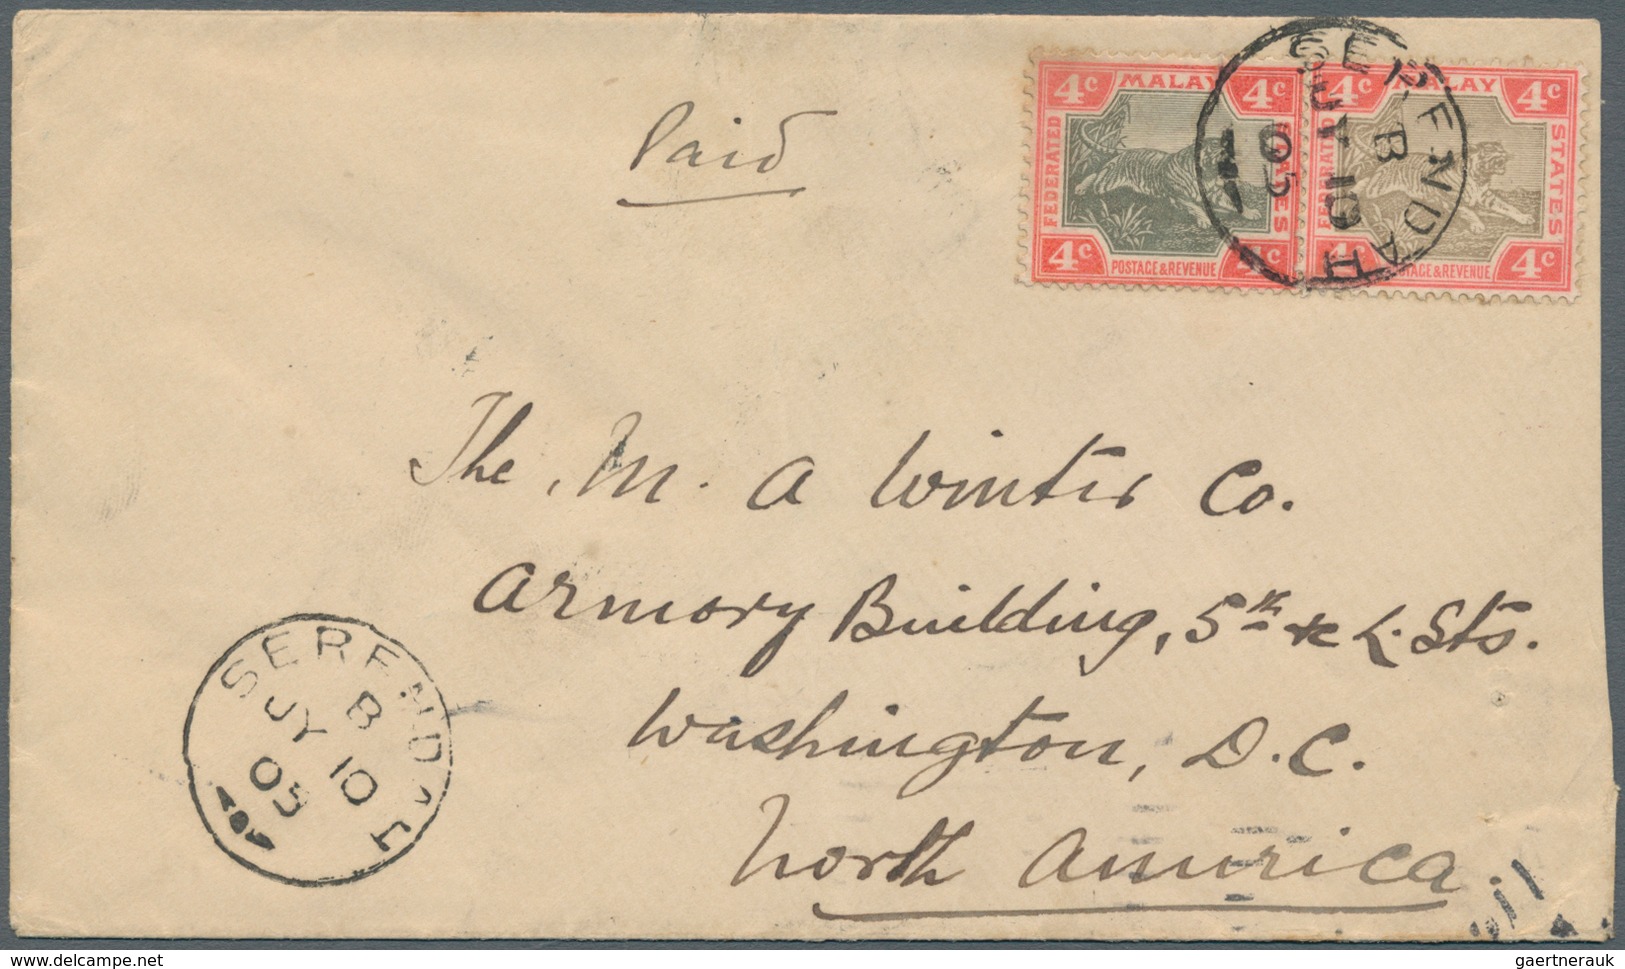 Paid
4c MALAY 4c
FEDERATED STATES
4c POSTAGE & REVENUE 4c
4c MALAY 4c
FEDERATED STATES
4c POSTAGE & REVENUE 4c
SERENDAH
B
JY 10
05
The M. A Winter Co.
Armory Building, 5th & L. Sts.
Washington, D.C.
North America.
SERENDAH
B
JY 10
05
delcampe.net
gaertnerauk